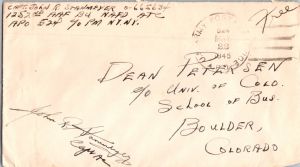 CAPT. JOHN R. STANMEYER O-662634
1252ND AAF BU NAFD ATC
APO 524 C/O PM N.Y. N.Y.
Free
1945
DEAN PETERSEN
C/O UNIV. OF COLO.
SCHOOL OF BUS.
BOULDER,
COLORADO
John R
Capt AC